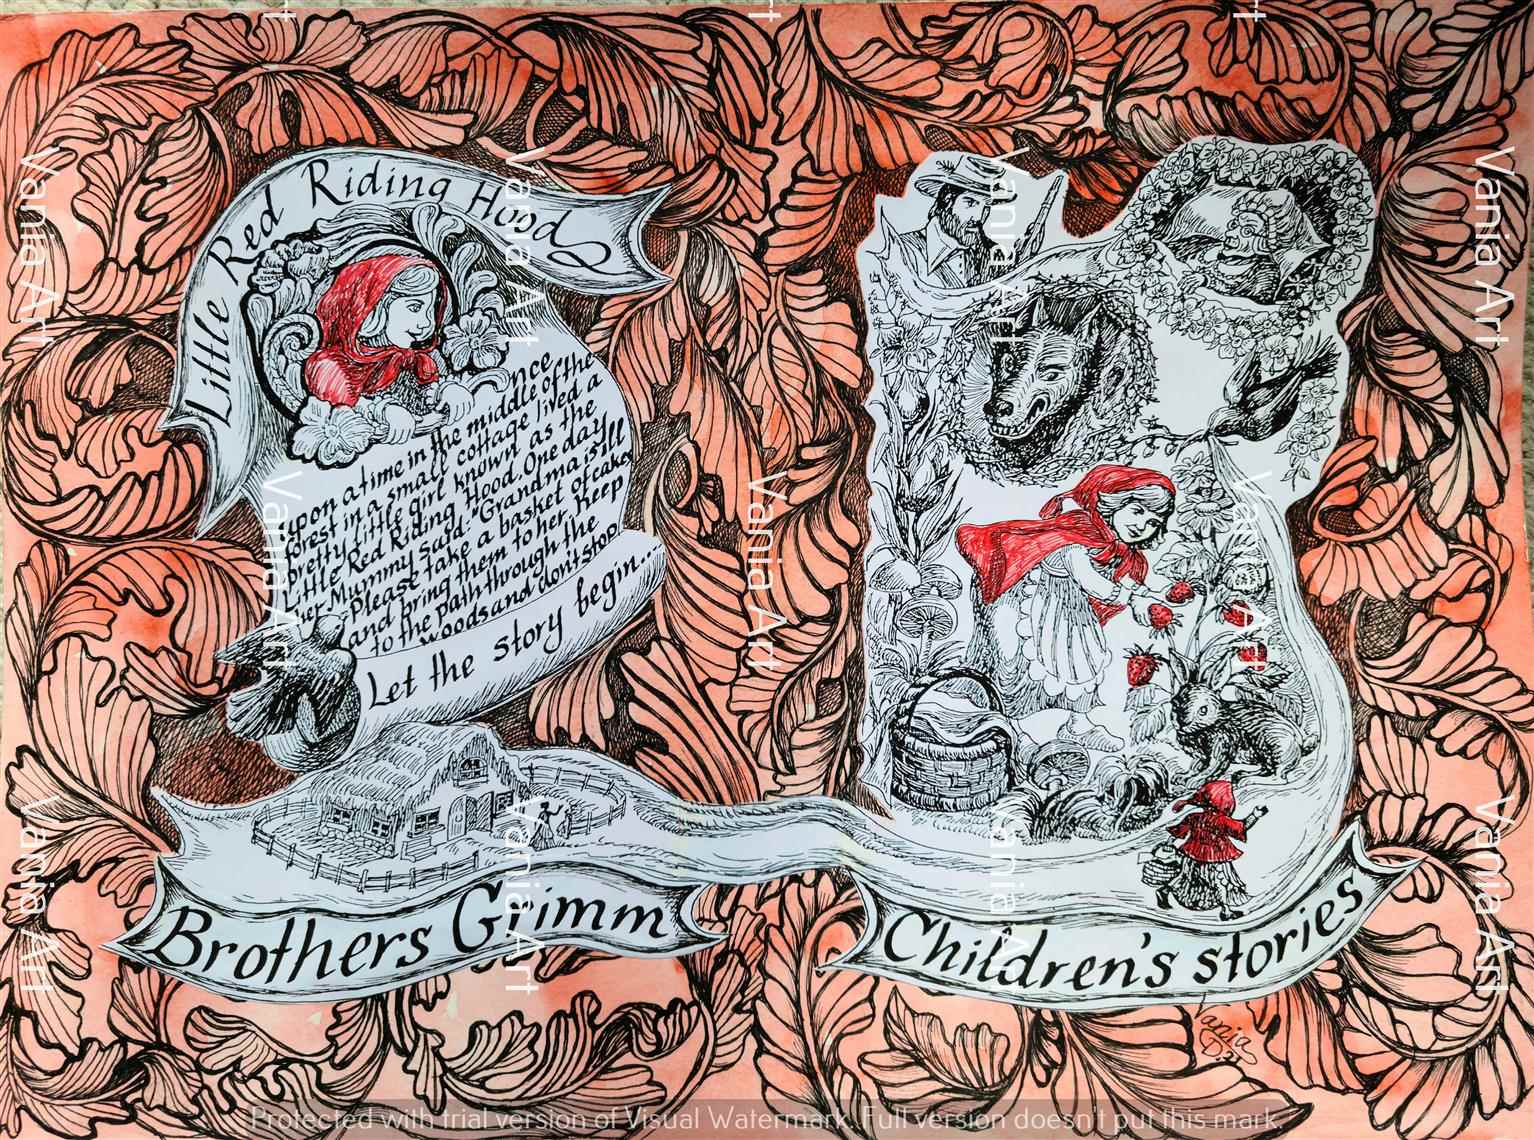 Little Red Riding Hood
nce
upon a time in the middle of the
forest in a small cottage lived a
pretty little girl known as the
Little Red Riding Hood. One day
her Mummy said: "Grandma is ill
Please take a basket of cakes
and bring them to her. Keep
to the path through the
woods and don't stop
Let the story begin...
Brothers Grimm
Children's stories
Vania
D.21
Vania Art
Vania Art
Vania Art
Vania Art
Vania Art
Vania Art
Vania Art
Vania Art
Vania Art
Vania Art
Vania Art
Protected with trial version of Visual Watermark. Full version doesn't put this mark.